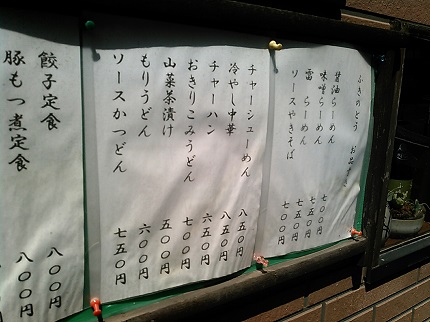 ふきのとう お品書き
醤油らーめん 七〇〇円
味噌らーめん 七五〇円
雷らーめん 七五〇円
ソースやきそば 七〇〇円
チャーシューめん 八五〇円
冷やし中華 八五〇円
チャーハン 六五〇円
おきりこみうどん 七〇〇円
山菜茶漬け 五〇〇円
もりうどん 六〇〇円
ソースかつどん 七五〇円
餃子定食 八〇〇円
豚もつ煮定食 八〇〇円